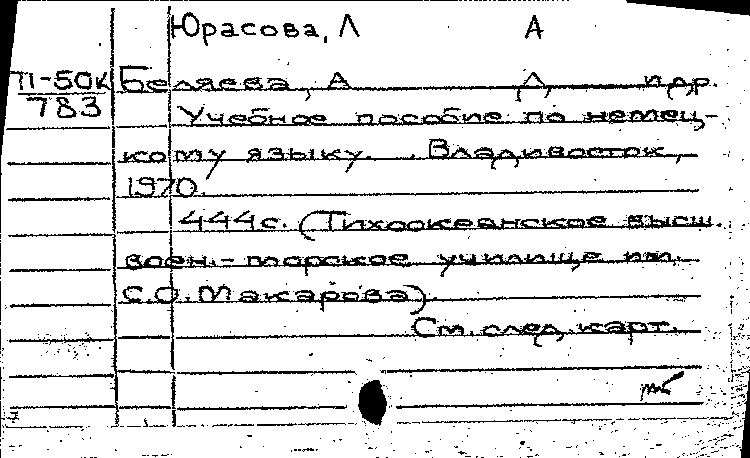 Юрасова, Л А
П-50к Беляева, А Л, и др.
783 Учебное пособие по немец-
кому языку. . Владивосток,
1970.
444с. (Тихоокеанское высш.
воен.-морское училище им.
С.О. Макарова)
См. след. карт.